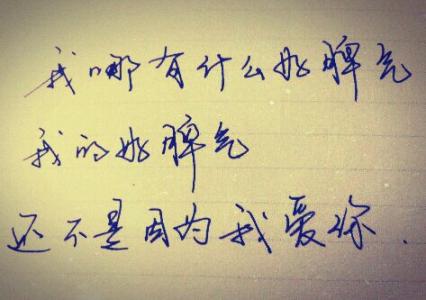 我哪有什么好脾气
我的好脾气
还不是因为我爱你.